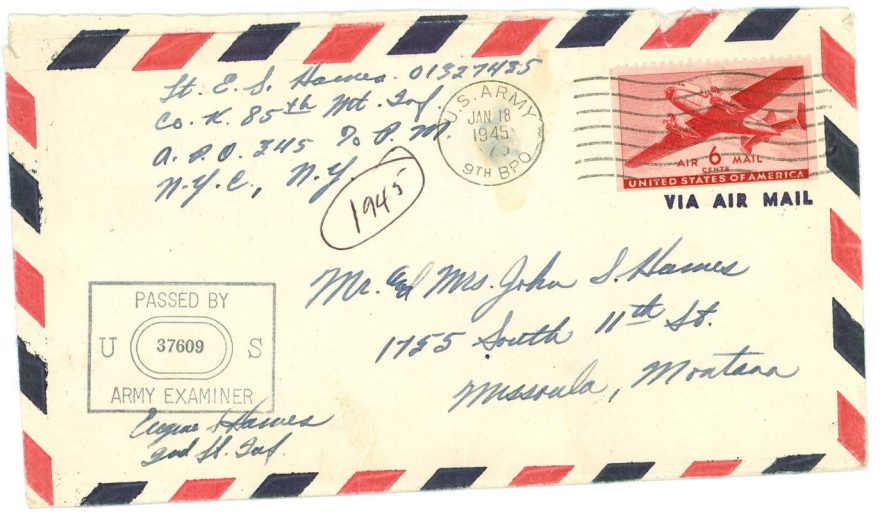 Lt. E. S. Hames. 01327435
Co. K. 85th Mt. Inf.
A. P. O. 345 % P. M.
N.Y.C., N.Y.
1945
U.S. ARMY
JAN 18
1945
9TH BPO
AIR 6 MAIL
CENTS
UNITED STATES OF AMERICA
VIA AIR MAIL
Mr. and Mrs. John S. Hames
1755 South 11th St.
Missoula, Montana
PASSED BY
U 37609 S
ARMY EXAMINER
Eugene S Hames
2nd Lt. Inf.